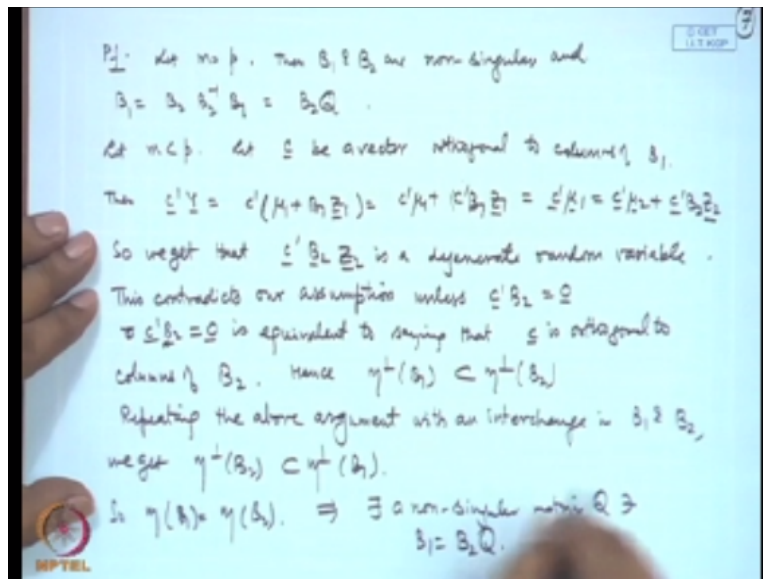 © CET
I.I.T. KGP
Pf. Let m = p. Then B₁ & B₂ are non-singular and
B₁ = B₂ B₂⁻¹ B₁ = B₂Q.
Let m < p. Let c be a vector orthogonal to columns of B₁.
Then c'Y = c'(μ₁ + B₁ Z₁) = c'μ₁ + c'B₁ Z₁ = c'μ₁ = c'μ₂ + c'B₂Z₂
So we get that c' B₂ Z₂ is a degenerate random variable.
This contradicts our assumption unless c'B₂ = 0
c'B₂ = 0 is equivalent to saying that c is orthogonal to
columns of B₂. Hence η⊥(B₁) ⊂ η⊥(B₂)
Repeating the above argument with an interchange in B₁ & B₂,
we get η⊥(B₂) ⊂ η⊥(B₁).
So η(B₁) = η(B₂). ⇒ ∃ a non-singular matrix Q ∋
B₁ = B₂Q.
NPTEL